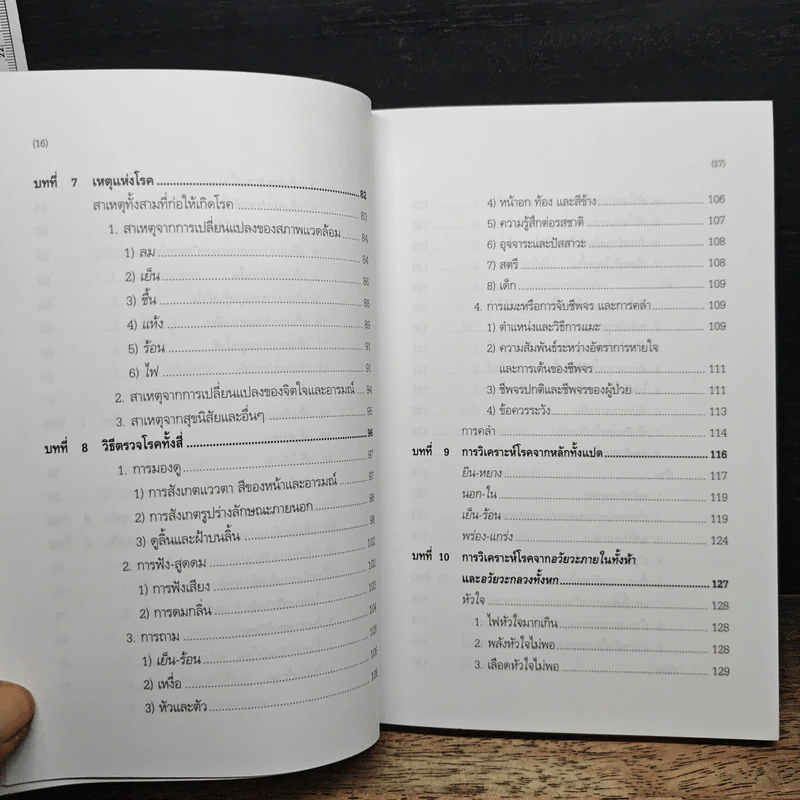 22
(16)
บทที่ 7 เหตุแห่งโรค 82
สาเหตุทั้งสามที่ก่อให้เกิดโรค 83
1. สาเหตุจากการเปลี่ยนแปลงของสภาพแวดล้อม 84
1) ลม 84
2) เย็น 86
3) ชื้น 88
4) แห้ง 89
5) ร้อน 91
6) ไฟ 91
2. สาเหตุจากการเปลี่ยนแปลงของจิตใจและอารมณ์ 94
3. สาเหตุจากสุขนิสัยและอื่นๆ 95
บทที่ 8 วิธีตรวจโรคทั้งสี่ 96
1. การมองดู 97
1) การสังเกตแววตา สีของหน้าและอารมณ์ 97
2) การสังเกตรูปร่างลักษณะภายนอก 98
3) ดูลิ้นและฝ้าบนลิ้น 98
2. การฟัง-สูดดม 102
1) การฟังเสียง 102
2) การดมกลิ่น 103
3. การถาม 104
1) เย็น-ร้อน 105
2) เหงื่อ 106
3) หัวและตัว 106
(17)
4) หน้าอก ท้อง และสีข้าง 106
5) ความรู้สึกต่อรสชาติ 107
6) อุจจาระและปัสสาวะ 108
7) สตรี 108
8) เด็ก 109
4. การแมะหรือการจับชีพจร และการคลำ 109
1) ตำแหน่งและวิธีการแมะ 109
2) ความสัมพันธ์ระหว่างอัตราการหายใจ
และการเต้นของชีพจร 111
3) ชีพจรปกติและชีพจรของผู้ป่วย 111
4) ข้อควรระวัง 113
การคลำ 114
บทที่ 9 การวิเคราะห์โรคจากหลักทั้งแปด 116
ยิน-หยาง 117
นอก-ใน 119
เย็น-ร้อน 119
พร่อง-แกร่ง 124
บทที่ 10 การวิเคราะห์โรคจากอวัยวะภายในทั้งห้า
และอวัยวะกลวงทั้งหก 127
หัวใจ 128
1. ไฟหัวใจมากเกิน 128
2. พลังหัวใจไม่พอ 128
3. เลือดหัวใจไม่พอ 129